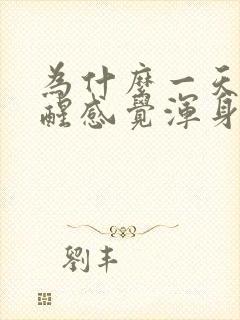 為什麼一天
醒感覺渾身
劉丰